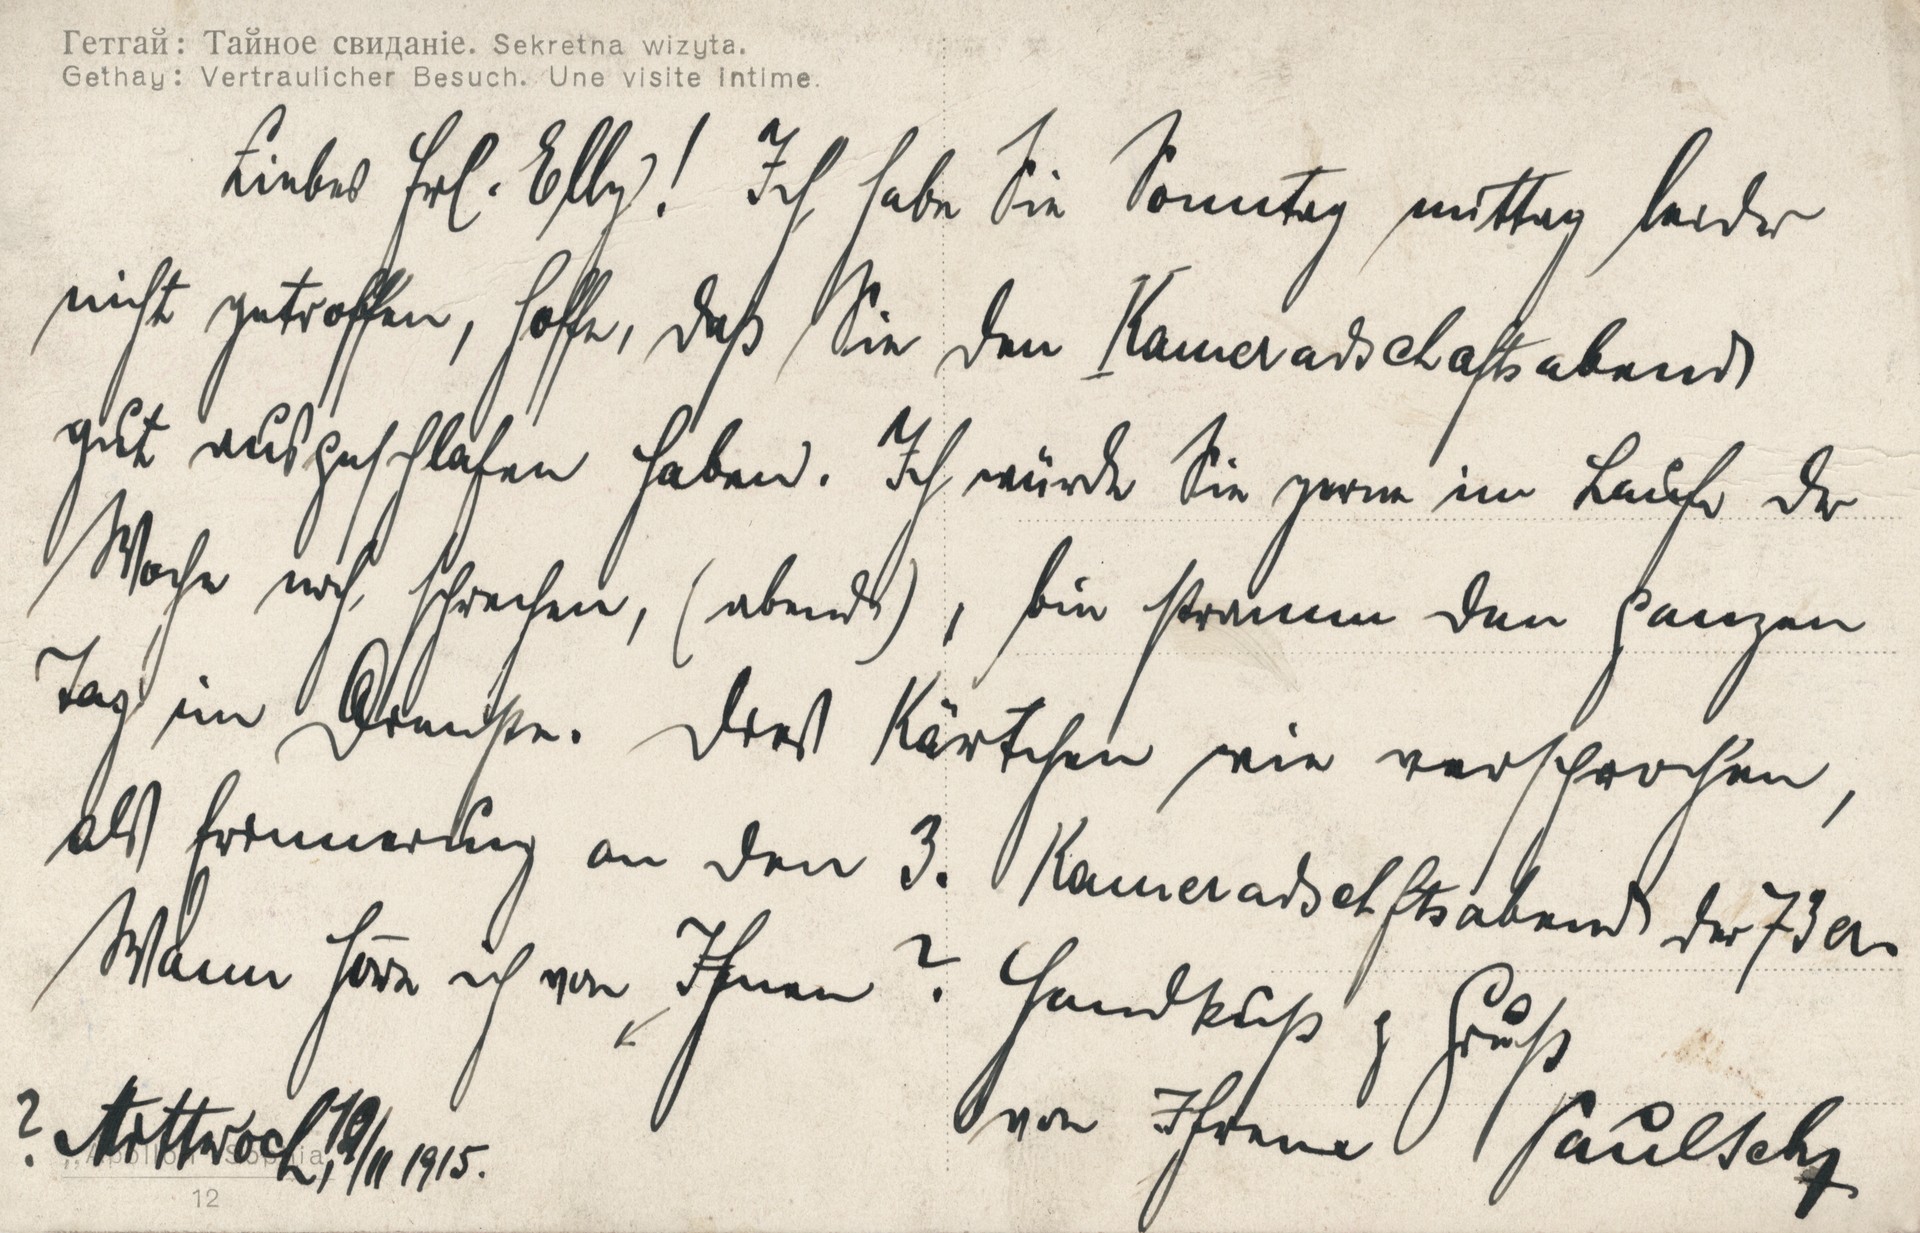 Гетгай: Тайное свиданіе. Sekretna wizyta.
Gethay: Vertraulicher Besuch. Une visite intime.
Liebes Frl. Elly! Ich habe Sie Sonntag mittag leider
nicht getroffen, hoffe, daß Sie den Kameradschaftsabend
gut ausgeschlafen haben. Ich würde Sie gerne im Laufe der
Woche noch sprechen, (abends), bin stramm den ganzen
Tag im Dienste. Dies Kärtchen wie versprochen,
als Erinnerung an den 3. Kameradschftsabend der 73er.
Wann höre ich von Ihnen? Handkuß & Gruß
von Ihrene
? Mittwoch, /II 1915.
„Apollon" Sophia
12